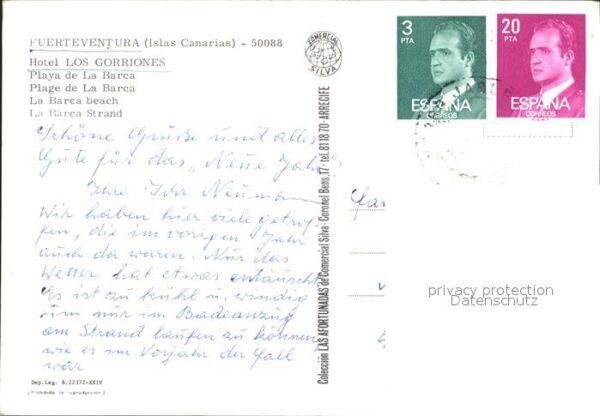 FUERTEVENTURA (Islas Canarias) - 50088
Hotel LOS GORRIONES
Playa de La Barca
Plage de La Barca
La Barca beach
La Barca Strand
Schöne Grüße und alles
Gute für das „Neue Jahr"
Ihre Neumann
Wir haben hier viele getrof-
fen, die im vorigen Jahr
auch da waren. Nur das
Wetter hat etwas entäuscht
Es ist zu kühl u. windig
um nur im Badeanzug
am Strand laufen zu können
wie es im Vorjahr der Fall
wär
Dep. Leg. B. 22372-XXIV
(Prohibida la reproducción)
COMERCIAL SILVA
Colección LAS AFORTUNADAS de Comercial Silva - Coronel Bens, 17 - tel. 81 18 70 - ARRECIFE
3
PTA
ESPAÑA
CORREOS
20
PTA
ESPAÑA
CORREOS
privacy protection
Datenschutz